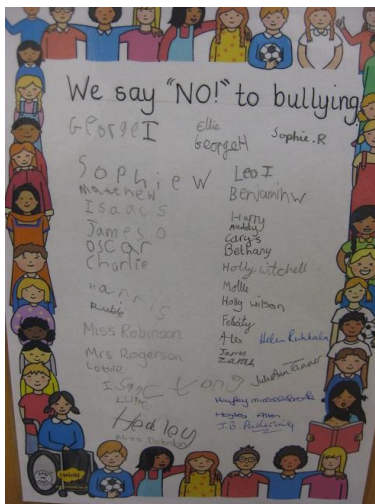 We say "NO!" to bullying
George I
Ellie
George H
Sophie.R
Sophie W
Matthew
Isaac S
James O
oscar
Charlie
Hannis
Ruby
Miss Robinson
Mrs Rogerson
Lottie
Isaac Long
Luke
Hedley
Miss
Leo I
Benjamin W
Harry
Maddy
Cary s
Bethany
Holly witchell
Mollie
Holly wilson
Felicity
Alex
Helen
James
Zarah
Julie Ann Tanner
Hayley
Hayley Allen
J.B.